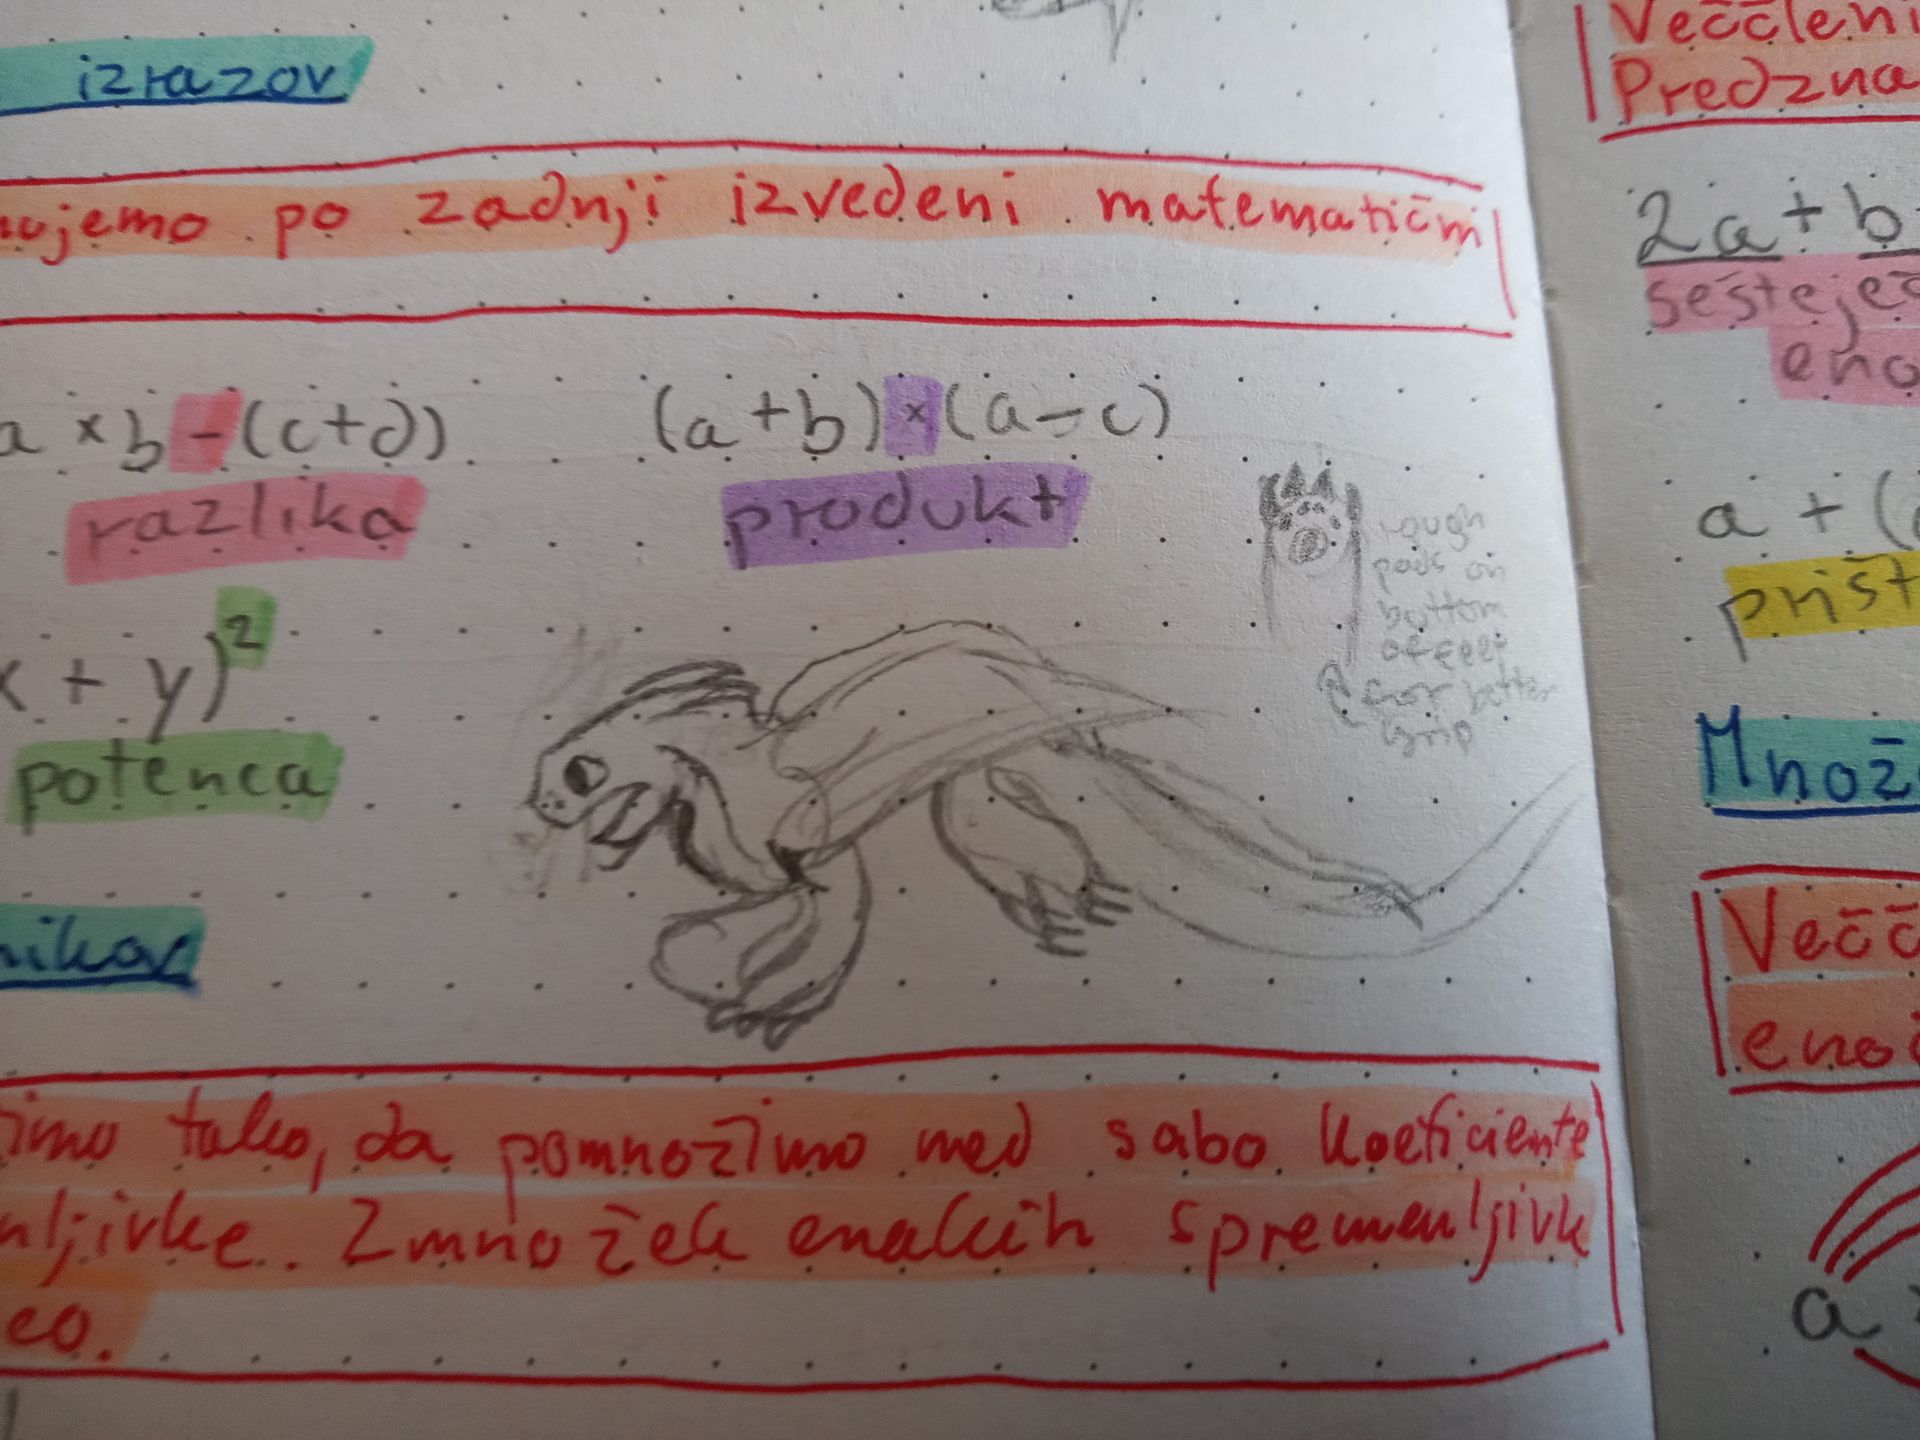 izrazov
nujemo po zadnji izvedeni matematični
a × b - (c+d))
razlika
(a + b) × (a - c)
produkt
rough
pads on
bottom
of feet
for better
grip
x + y)²
potenca
nikov
žimo tako, da pomnožimo med sabo koeficiente
nljivke. Zmnožek enakih spremenljivk
co.
Večcleni
Predzna
2a + b
sešteješ
eno
a + (
prišt
Množ
Večč
enoč
a